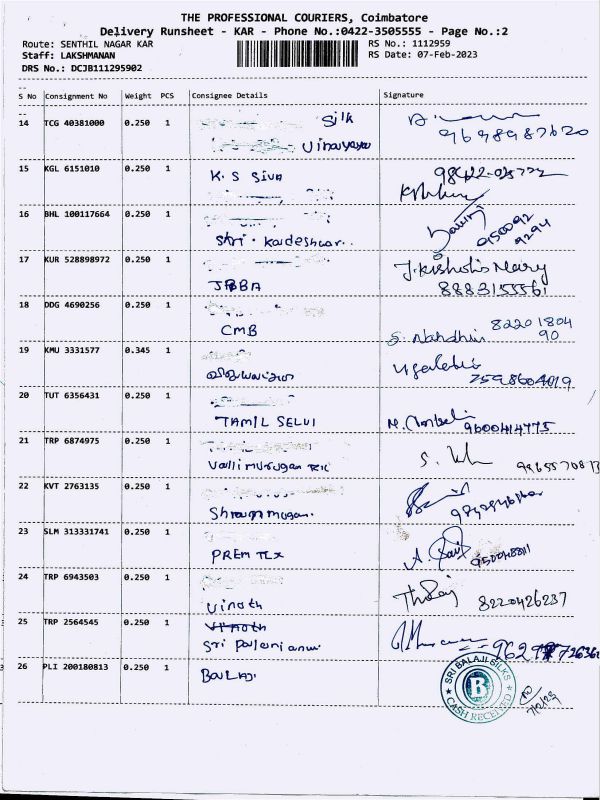 THE PROFESSIONAL COURIERS, Coimbatore
Delivery Runsheet - KAR - Phone No.:0422-3505555 - Page No.:2
Route: SENTHIL NAGAR KAR
RS No.: 1112959
Staff: LAKSHMANAN
RS Date: 07-Feb-2023
DRS No.: DCJB111295902
S No Consignment No Weight PCS Consignee Details Signature
14 TCG 40381000 0.250 1 Silk
Vinayaga 9698987620
15 KGL 6151010 0.250 1
K.S Siva
16 BHL 100117664 0.250 1
Shri. 950092
9294
17 KUR 528898972 0.250 1
JBBA 8883155561
18 DDG 4690256 0.250 1
CMB 82201804
90
19 KMU 3331577 0.345 1
20 TUT 6356431 0.250 1
TAMIL SELVI 9600414775
21 TRP 6874975 0.250 1
Valli murugan
22 KVT 2763135 0.250 1
Shraun mugan.
23 SLM 313331741 0.250 1
PREM TEX
24 TRP 6943503 0.250 1
Vinoth 8220426237
25 TRP 2564545 0.250 1 Vinoth
Sri
26 PLI 200180813 0.250 1
BOULAJI
SRI BALAJI SILKS
B
CASH RECEIVED
7/2/23